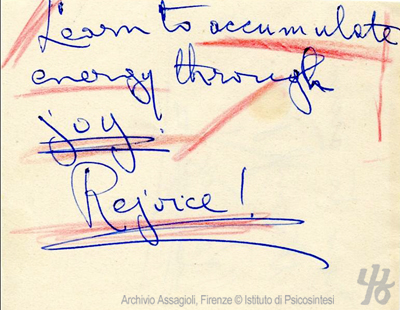 Learn to accumulate
energy through
joy.
Rejoice!
Archivio Assagioli, Firenze © Istituto di Psicosintesi